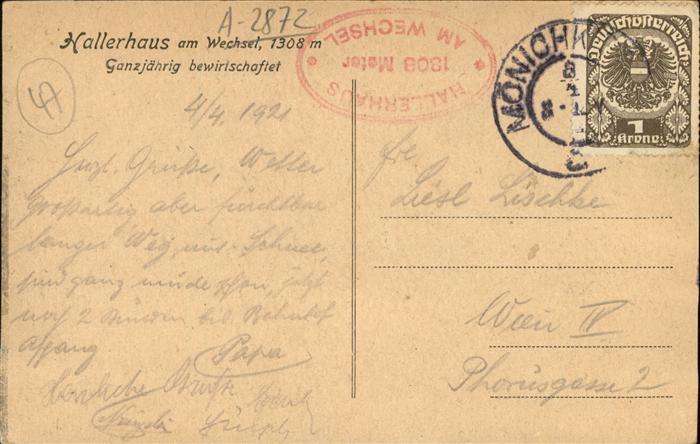 A-2872
Hallerhaus am Wechsel, 1308 m
Ganzjährig bewirtschaftet
47
HALLERHAUS
1308 Meter
AM WECHSEL
MÖNICHK
Deutschösterreich
1
Krone
4/4 1921
Herzl. Grüße, Wetter
Großartig aber furchtbar
langer Weg, mit Schnee,
sind ganz müde schon, jetzt
noch 2 Stunden bis Bahnhof
Aspang
Papa
Frl.
Liesl Lischke
Wien IV
Phorusgasse 2